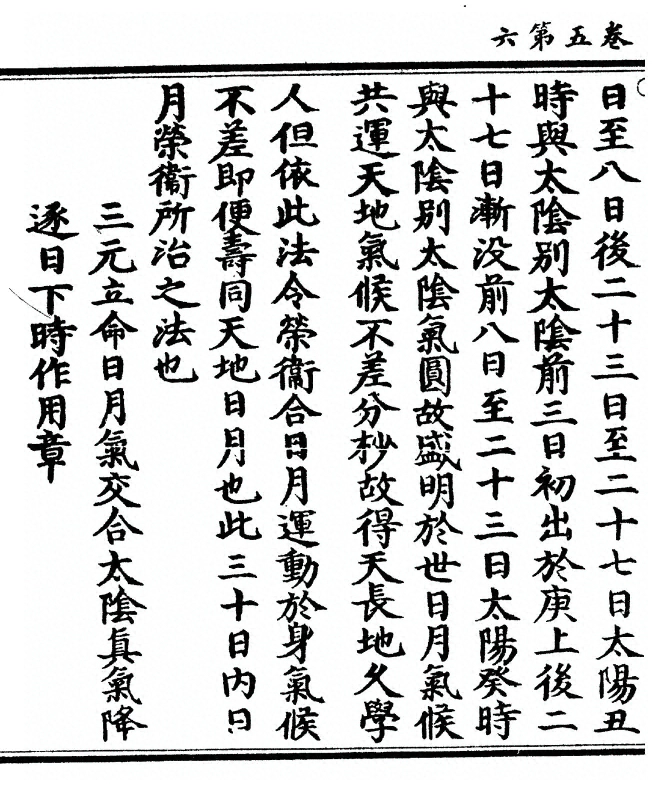 卷五第六
日至八日後二十三日至二十七日太陽丑
時與太陰別太陰前三日初出於庚上後二
十七日漸没前八日至二十三日太陽癸時
與太陰別太陰氣圓故盛明於世日月氣候
共運天地氣候不差分杪故得天長地久學
人但依此法令榮衞合日月運動於身氣候
不差即便壽同天地日月也此三十日内日
月榮衞所治之法也
三元立命日月氣交合太陰眞氣降
逐日下時作用章